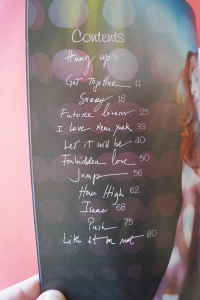 Contents
Hung up 5
Get Together 11
Sorry 18
Future lovers 25
I love New York 33
Let it will be 40
Forbidden love 50
Jump 56
How High 62
Isaac 68
Push 75
Like it or not 80